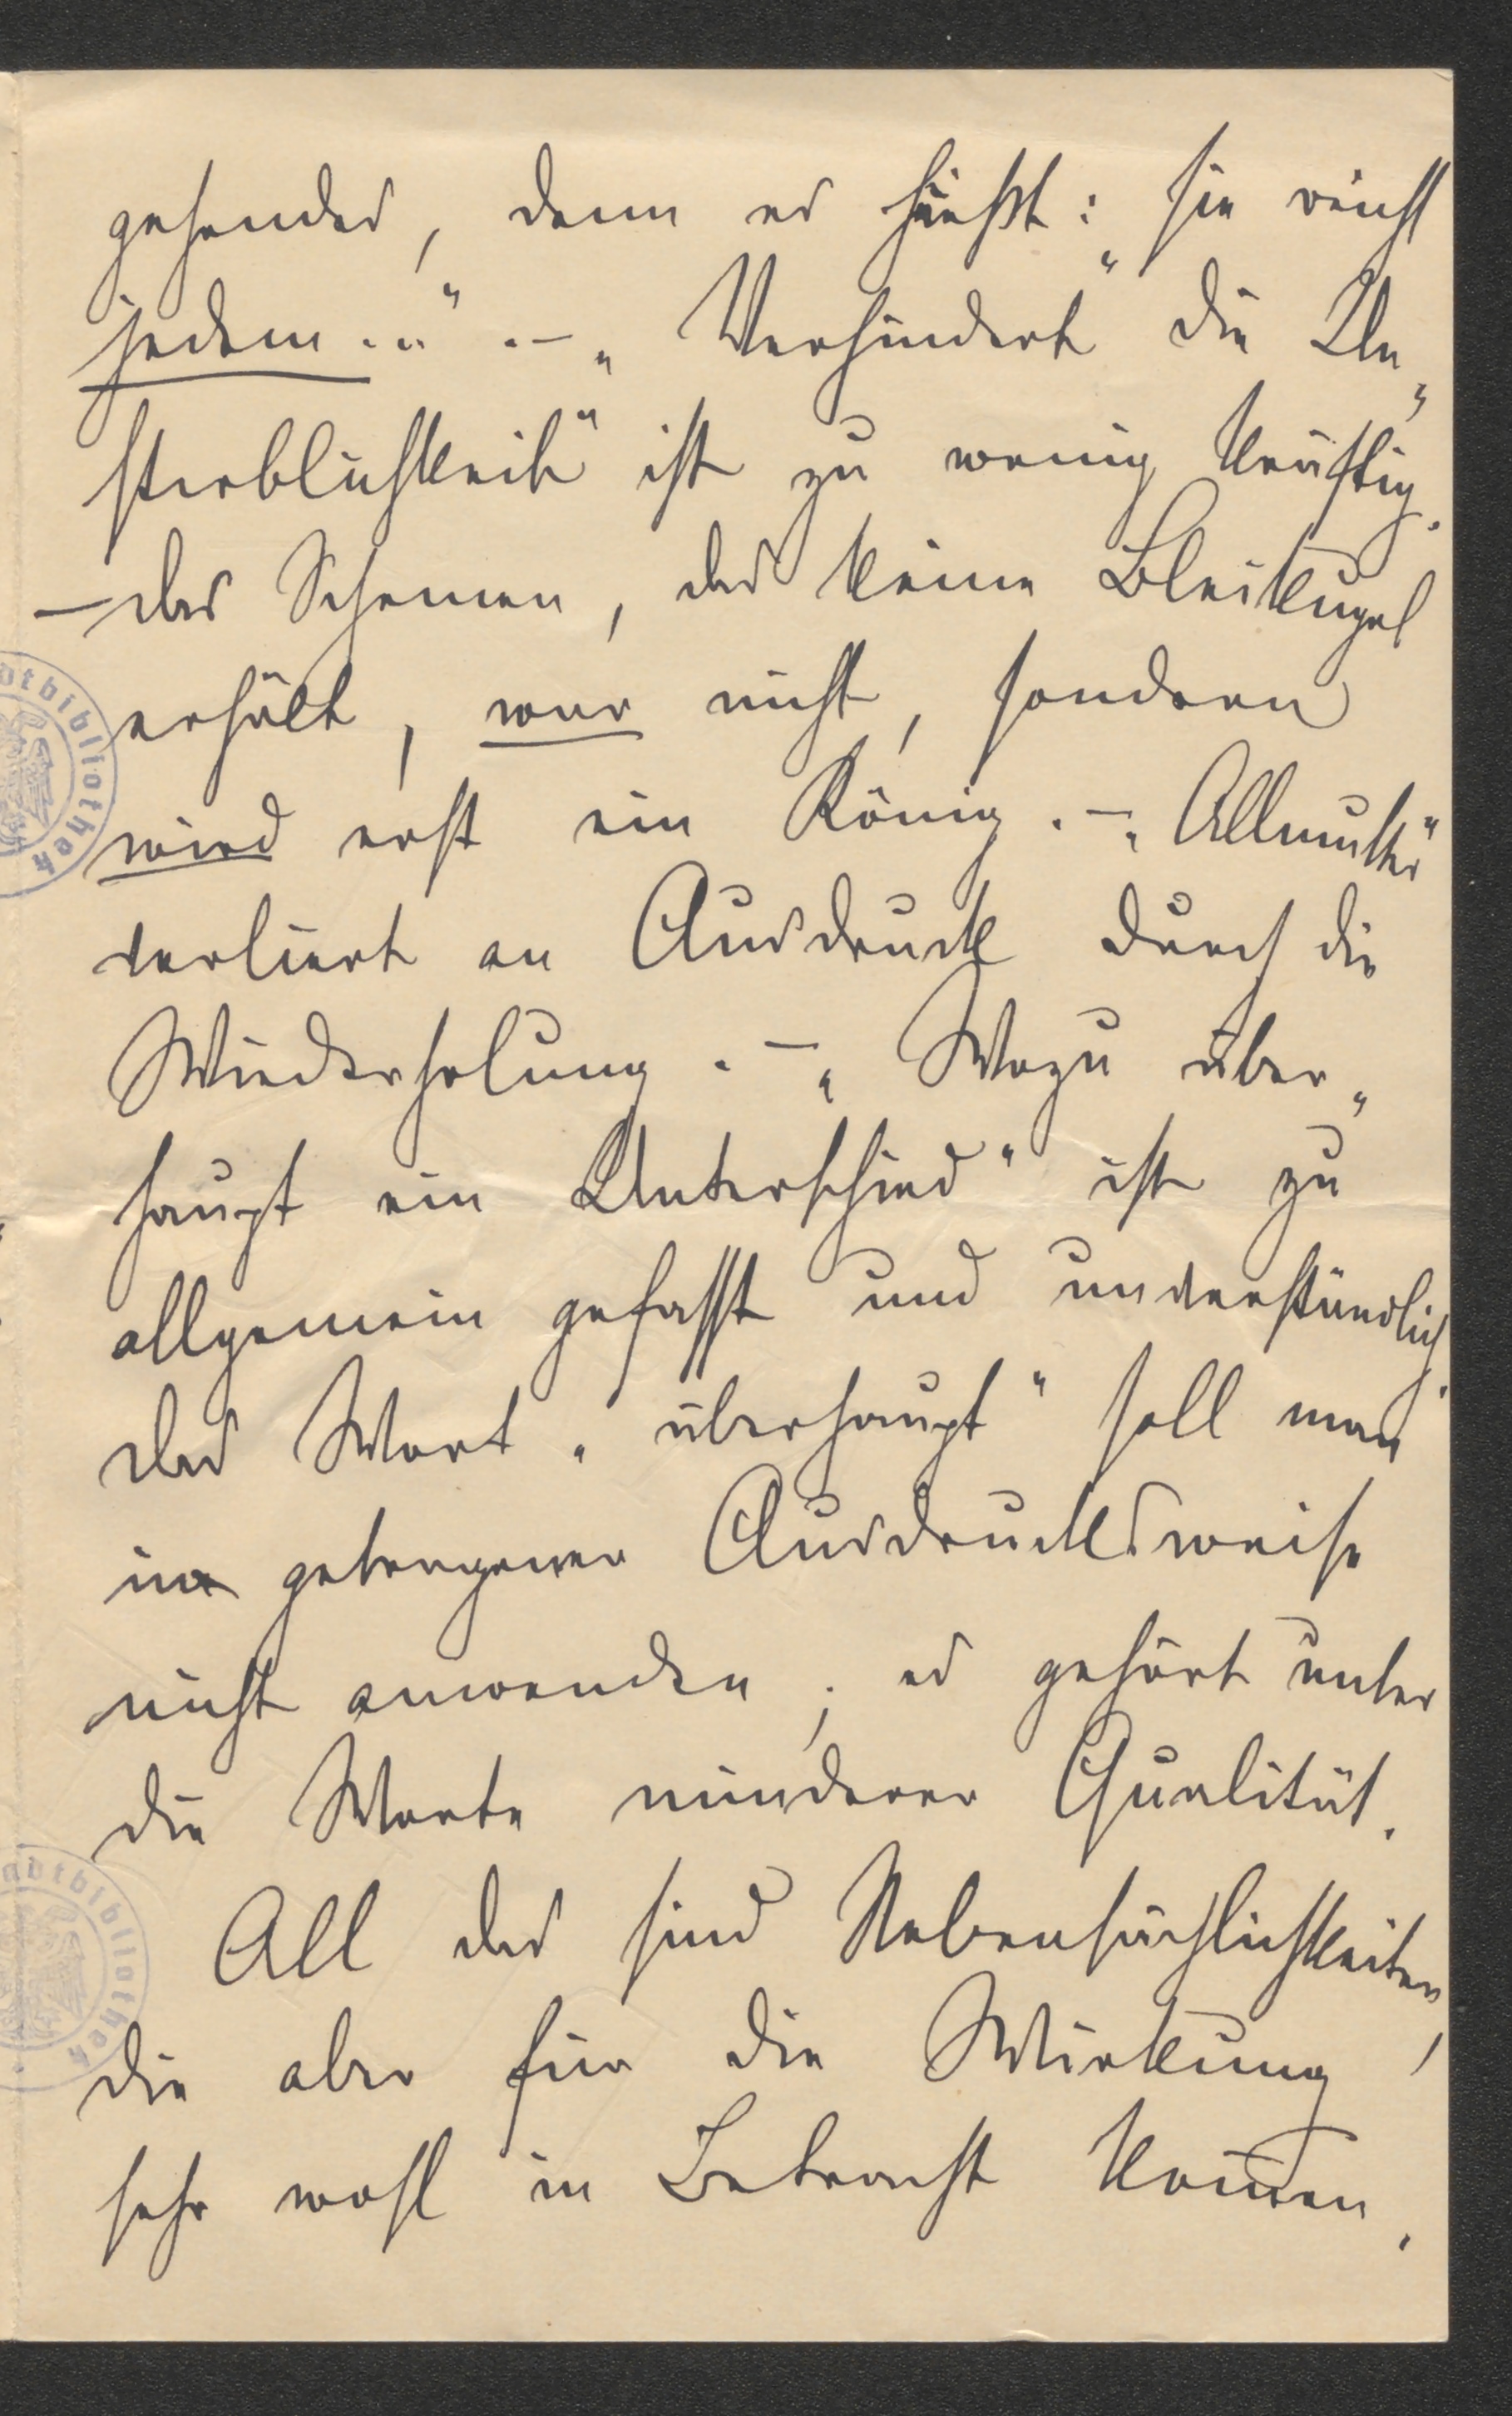 gehendes, denn es heißt: „sie reicht
jedem..." .– „Verhindert die Un„
sterblichkeit" ist zu wenig kräftig.
– Das Schemen, das keine Bleikugel
erhält, war nicht, sondern
wird erst ein König. – „Allmutter"
verliert an Ausdruck durch die
Wiederholung. – „Wozu über„
haupt ein Unterschied" ist zu
allgemein gefasst und unverständlich.
Das Wort „überhaupt" soll man
in gehobener Ausdrucksweise
nicht anwenden; es gehört unter
die Worte minderer Qualität.
All das sind Nebensächlichkeiten,
die aber für die Wirkung
sehr wohl in Betracht kom̄en.
adtbibliothek
adtbibliothek